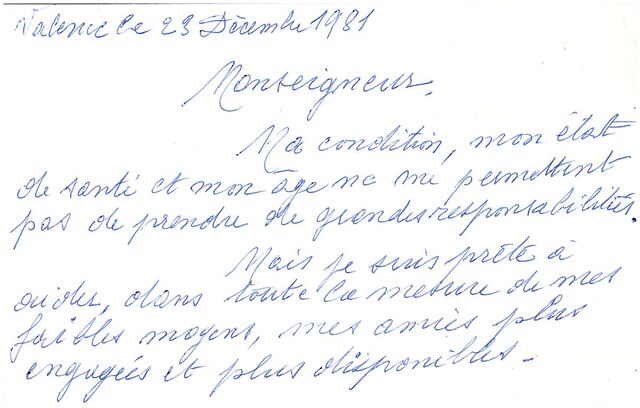 Valence le 23 Décembre 1981
Monseigneur,
Ma condition, mon état
de santé et mon âge ne me permettent
pas de prendre de grandes responsabilités.
Mais je suis prête à
aider, dans toute la mesure de mes
faibles moyens, mes amies plus
engagées et plus disponibles.